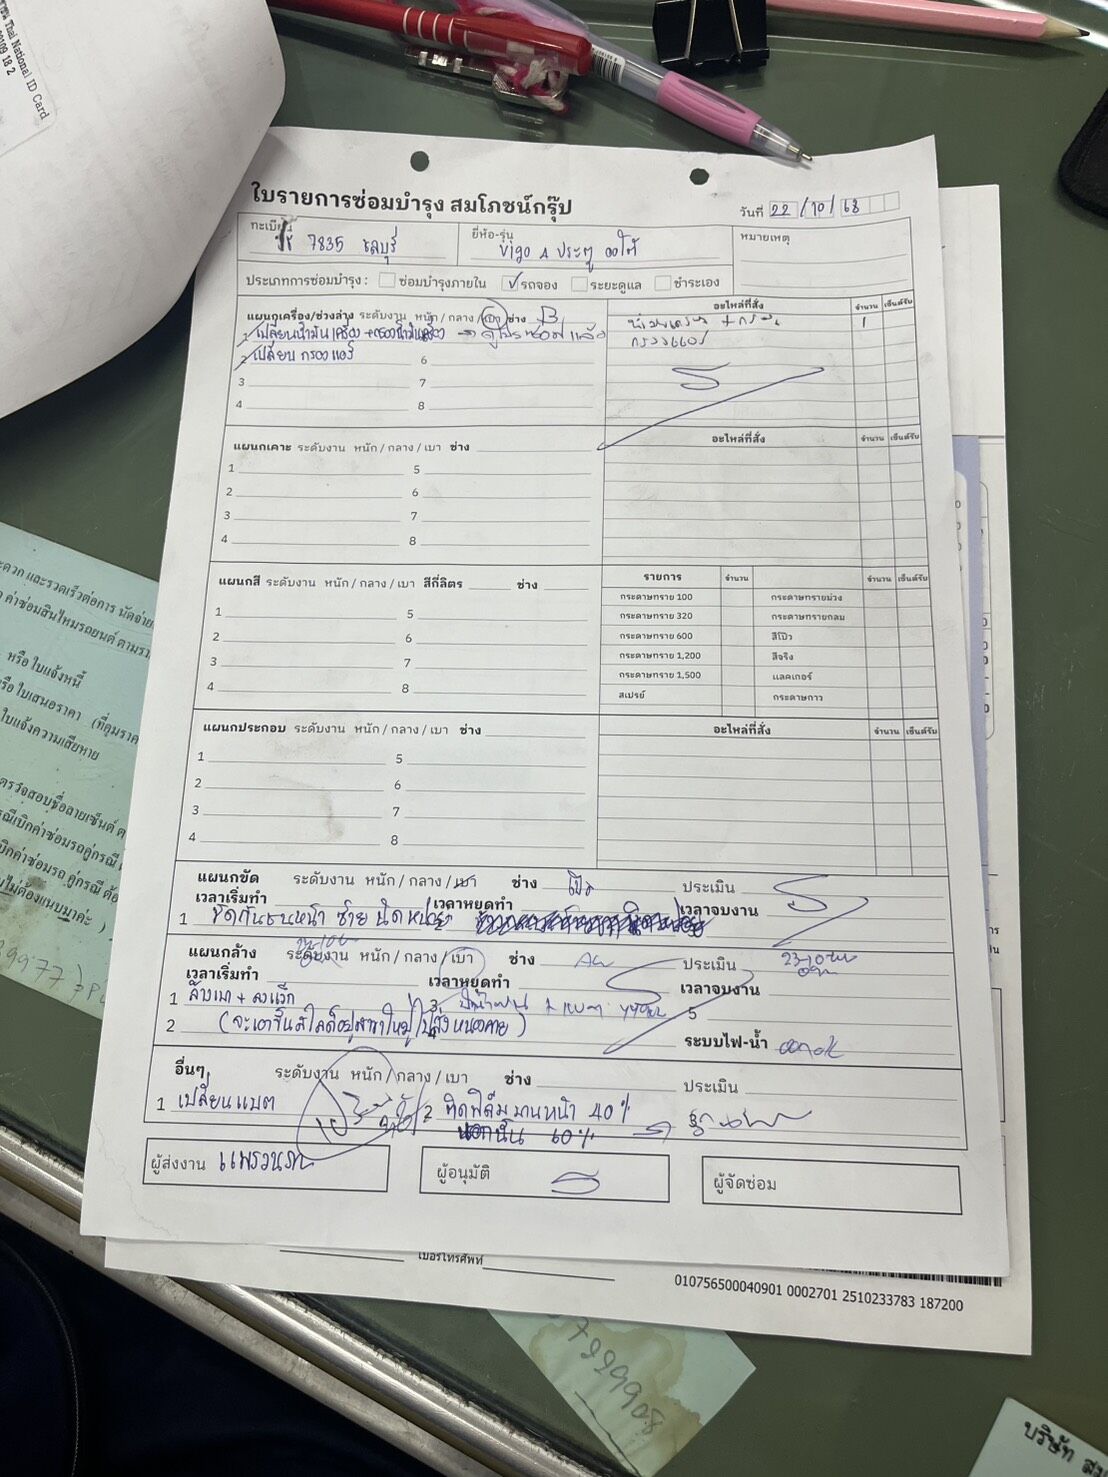 Thai National ID Card
ใบรายการซ่อมบำรุง สมโภชน์กรุ๊ป
วันที่ 22/10/68
ทะเบียน 7835 ชลบุรี
ยี่ห้อ-รุ่น Vigo 4 ประตู ออโต้
หมายเหตุ
ประเภทการซ่อมบำรุง : ซ่อมบำรุงภายใน ✓ รถจอง ระยะดูแล ชำระเอง
แผนกเครื่อง/ช่วงล่าง ระดับงาน หนัก / กลาง / เบา ช่าง B
อะไหล่ที่สั่ง จำนวน เซ็นต์รับ
1 เปลี่ยนน้ำมันเครื่อง + กรองน้ำมันเครื่อง
1
2 เปลี่ยน กรองแอร์ 6
กรองแอร์
3 7
4 8
แผนกเคาะ ระดับงาน หนัก / กลาง / เบา ช่าง
อะไหล่ที่สั่ง จำนวน เซ็นต์รับ
1 5
2 6
3 7
4 8
แผนกสี ระดับงาน หนัก / กลาง / เบา สีกี่ลิตร ช่าง
รายการ จำนวน จำนวน เซ็นต์รับ
กระดาษทราย 100 กระดาษทรายม่วง
1 5
กระดาษทราย 320 กระดาษทรายกลม
2 6
กระดาษทราย 600 สีโป๊ว
3 7
กระดาษทราย 1,200 สีจริง
กระดาษทราย 1,500 แลคเกอร์
4 8
สเปรย์ กระดาษกาว
แผนกประกอบ ระดับงาน หนัก / กลาง / เบา ช่าง
อะไหล่ที่สั่ง จำนวน เซ็นต์รับ
1 5
2 6
3 7
4 8
แผนกขัด ระดับงาน หนัก / กลาง / เบา ช่าง ประเมิน
เวลาเริ่มทำ เวลาหยุดทำ เวลาจบงาน
1 ขัดกันชนหน้า ซ้าย นิดหน่อย
แผนกล้าง ระดับงาน หนัก / กลาง / เบา ช่าง ประเมิน
เวลาเริ่มทำ เวลาหยุดทำ เวลาจบงาน
1 ล้างเบา + ลงแว็ก 3 5
2 (จะเอาขึ้นสไลด์อยู่สาขาใหญ่ ไปส่ง หนองคาย)
ระบบไฟ-น้ำ
อื่นๆ ระดับงาน หนัก / กลาง / เบา ช่าง ประเมิน
1 เปลี่ยนแบต
2 ติดฟิล์ม บานหน้า 40%
นอกนั้น 60%
ผู้ส่งงาน
ผู้อนุมัติ
ผู้จัดซ่อม
เบอร์โทรศัพท์
010756500040901 0002701 2510233783 187200
หรือ ใบแจ้งหนี้
ใบแจ้งความเสียหาย
บริษัท